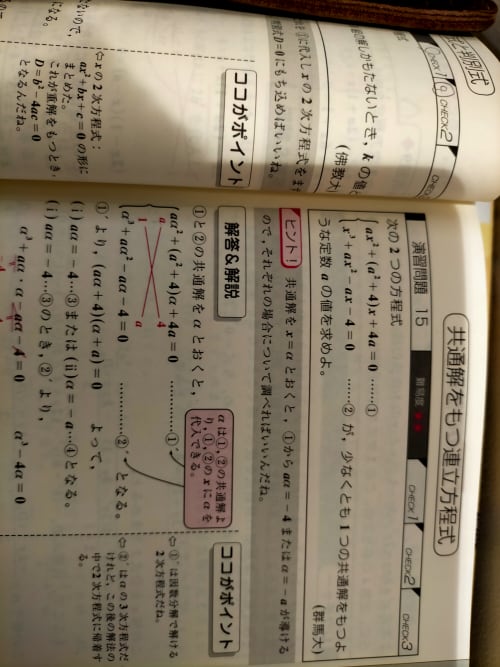 CHECK1
CHECK2
CHECK
もたないとき, kの値
(佛教大
①に代入しxの2次方程式をま
D=0にもち込めばいいね。
ココがポイント
⇦xの2次方程式：
ax²+bx+c=0の形に
まとめた。
これが重解をもつとき,
D=b²-4ac=0
となるんだね。
共通解をもつ連立方程式
演習問題 15
難易度
CHECK1
CHECK2
CHECK3
次の2つの方程式
ax²+(a²+4)x+4a=0 ……①
x³+ax²-ax-4=0 ……②
が, 少なくとも1つの共通解をもつよ
うな定数aの値を求めよ。
(群馬大)
ヒント! 共通解をx=αとおくと, ①からaα=-4またはα=-aが導ける
ので, それぞれの場合について調べればいいんだね。
解答&解説
①と②の共通解をαとおくと,
aα²+(a²+4)α+4a=0 …………①′
a 4
1 a
α³+aα²-aα-4=0 …………②′ となる。
αは①, ②の共通解よ
り, ①, ②のxにαを
代入できる。
①′より, (aα+4)(α+a)=0 よって,
(i) aα=-4…③または(ii)α=-a…④となる。
(i) aα=-4…③のとき, ②′より,
α³+aα・α-aα-4=0 α³-4α=0
ココがポイント
⇦①′は因数分解で解ける
2次方程式だね。
⇦②′はαの3次方程式だ
けれど, この後の解法の
中で2次方程式に帰着す
る。